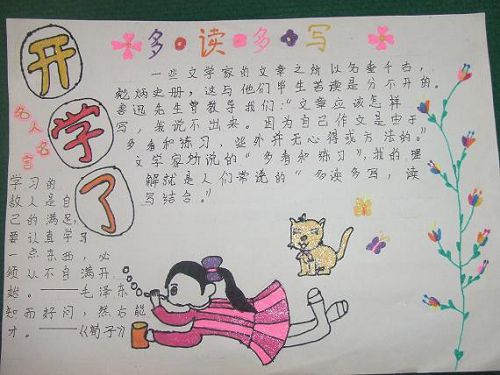 开学了
多读多写
一些文学家的文章之所以名垂千古,
乾炳史册,这与他们毕生苦读是分不开的。
鲁迅先生曾教导我们:“文章应该怎样
写,我说不出来。因为自己作文是由于
多看和练习,此外并无心得或方法的。”
文学家劝说的“多看和练习”,我的理
解就是人们常说的“多读多写,读
写结合。”
名人名言
学习的
敌人是自
己的满足,
要认真学习
一点东西,必
须从不自满开
始。——毛泽东
知而好问,然后能
才。——《荀子》